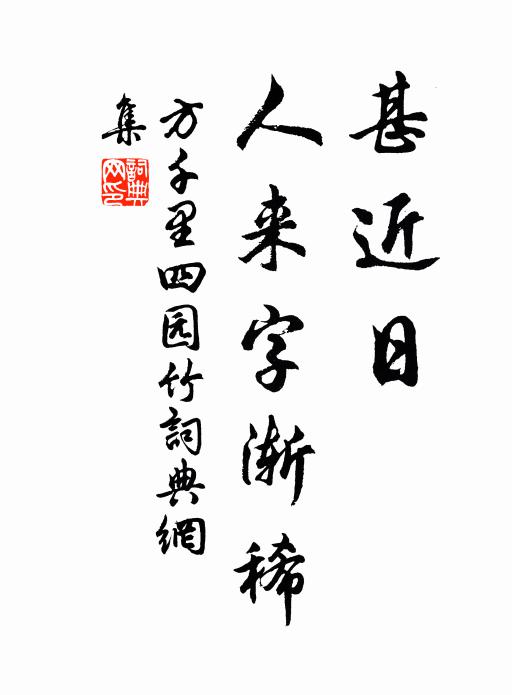 甚近日
人来字渐稀
方千里四园竹詞典網
集
詞典网印